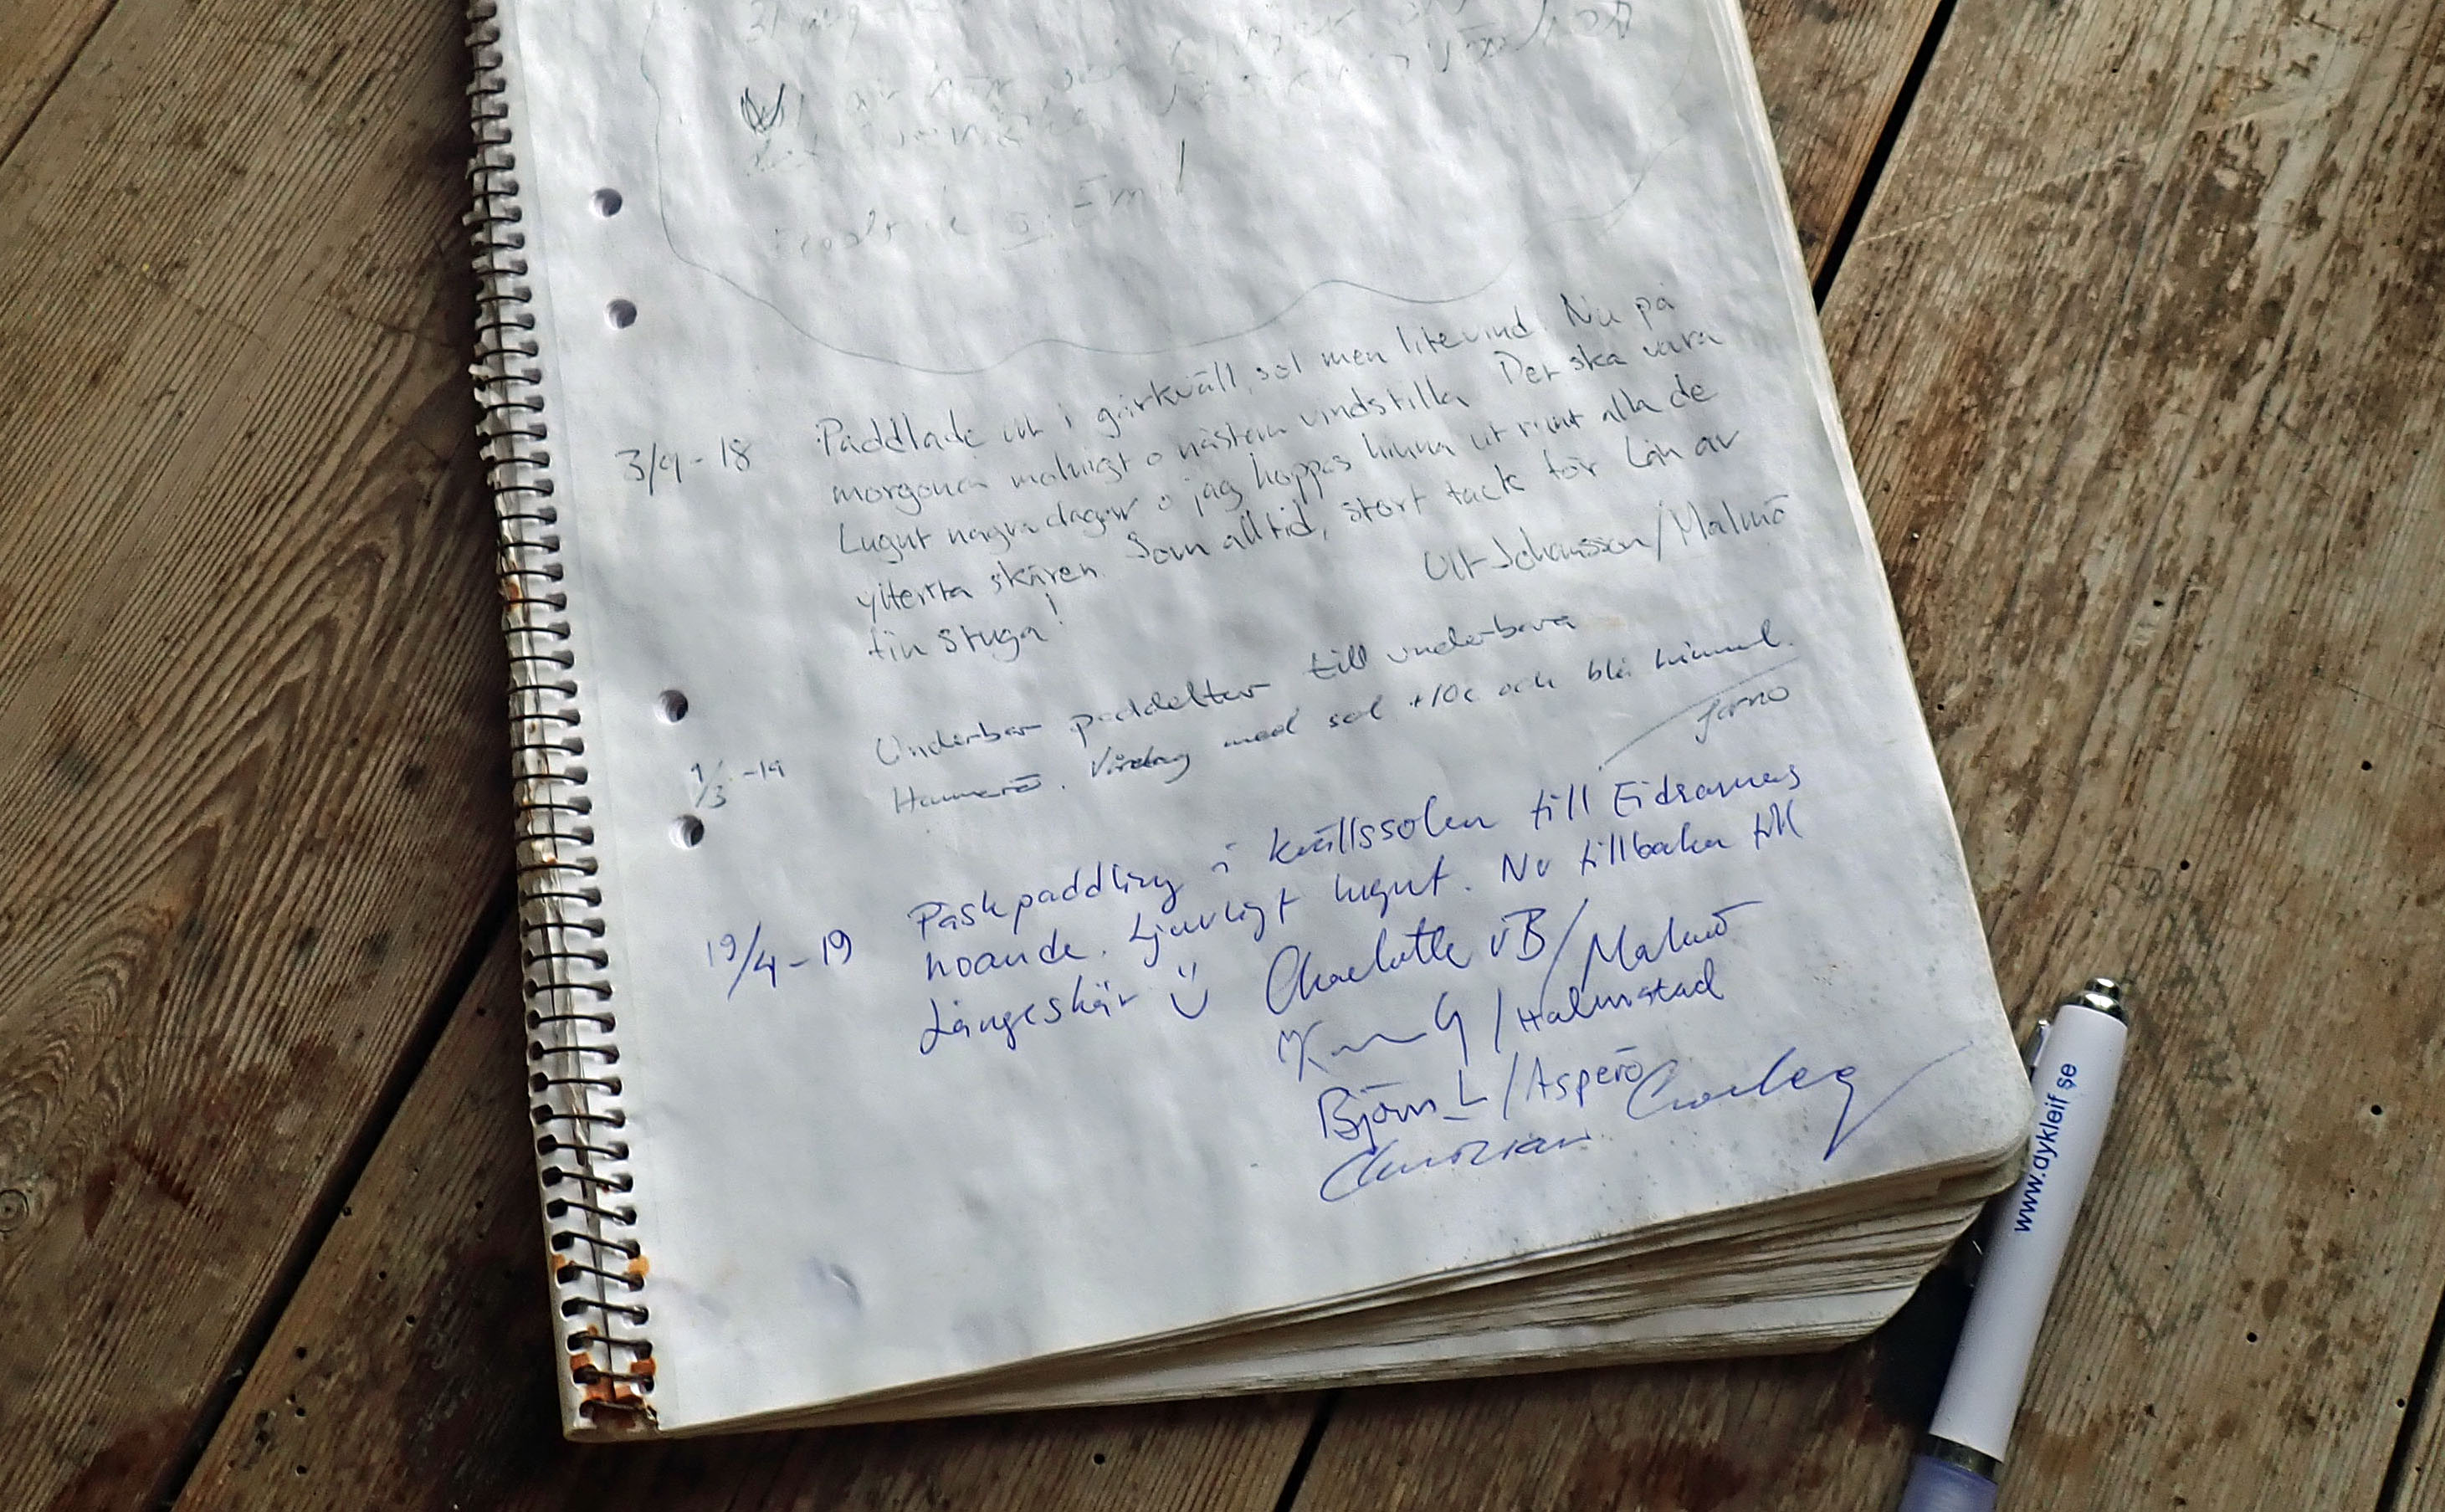 31 aug
är här
Fredrik o. Emil
3/9-18 Paddlade ut i går kväll, sol men lite vind. Nu på
morgonen molnigt o nästan vindstilla. Det ska vara
Lugnt några dagar o jag hoppas hinna ut runt alla de
yttersta skären. Som alltid, stort tack för Lån av
fin stuga!
Ulf Johansson/Malmö
9/3-19 Underbar paddeltur till underbara
Hamnerö. Vårdag med sol +10c och blå himmel.
Jarno
19/4-19 Påskpaddling i kvällssolen till Eidrarnas
hoande. Ljuvligt lugnt. Nu tillbaka till
Långeskär Ü Charlotte vB/Malmö
G/Halmstad
Björn L/Asperö
Christian
www.dykleif.se